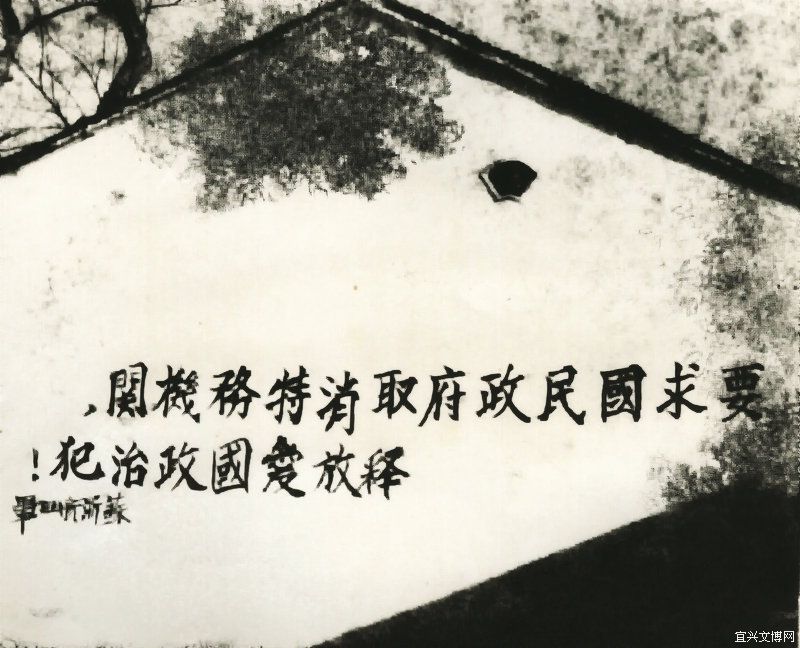 要求國民政府取消特務機関，
释放愛國政治犯！
蘇浙
宜兴文博网